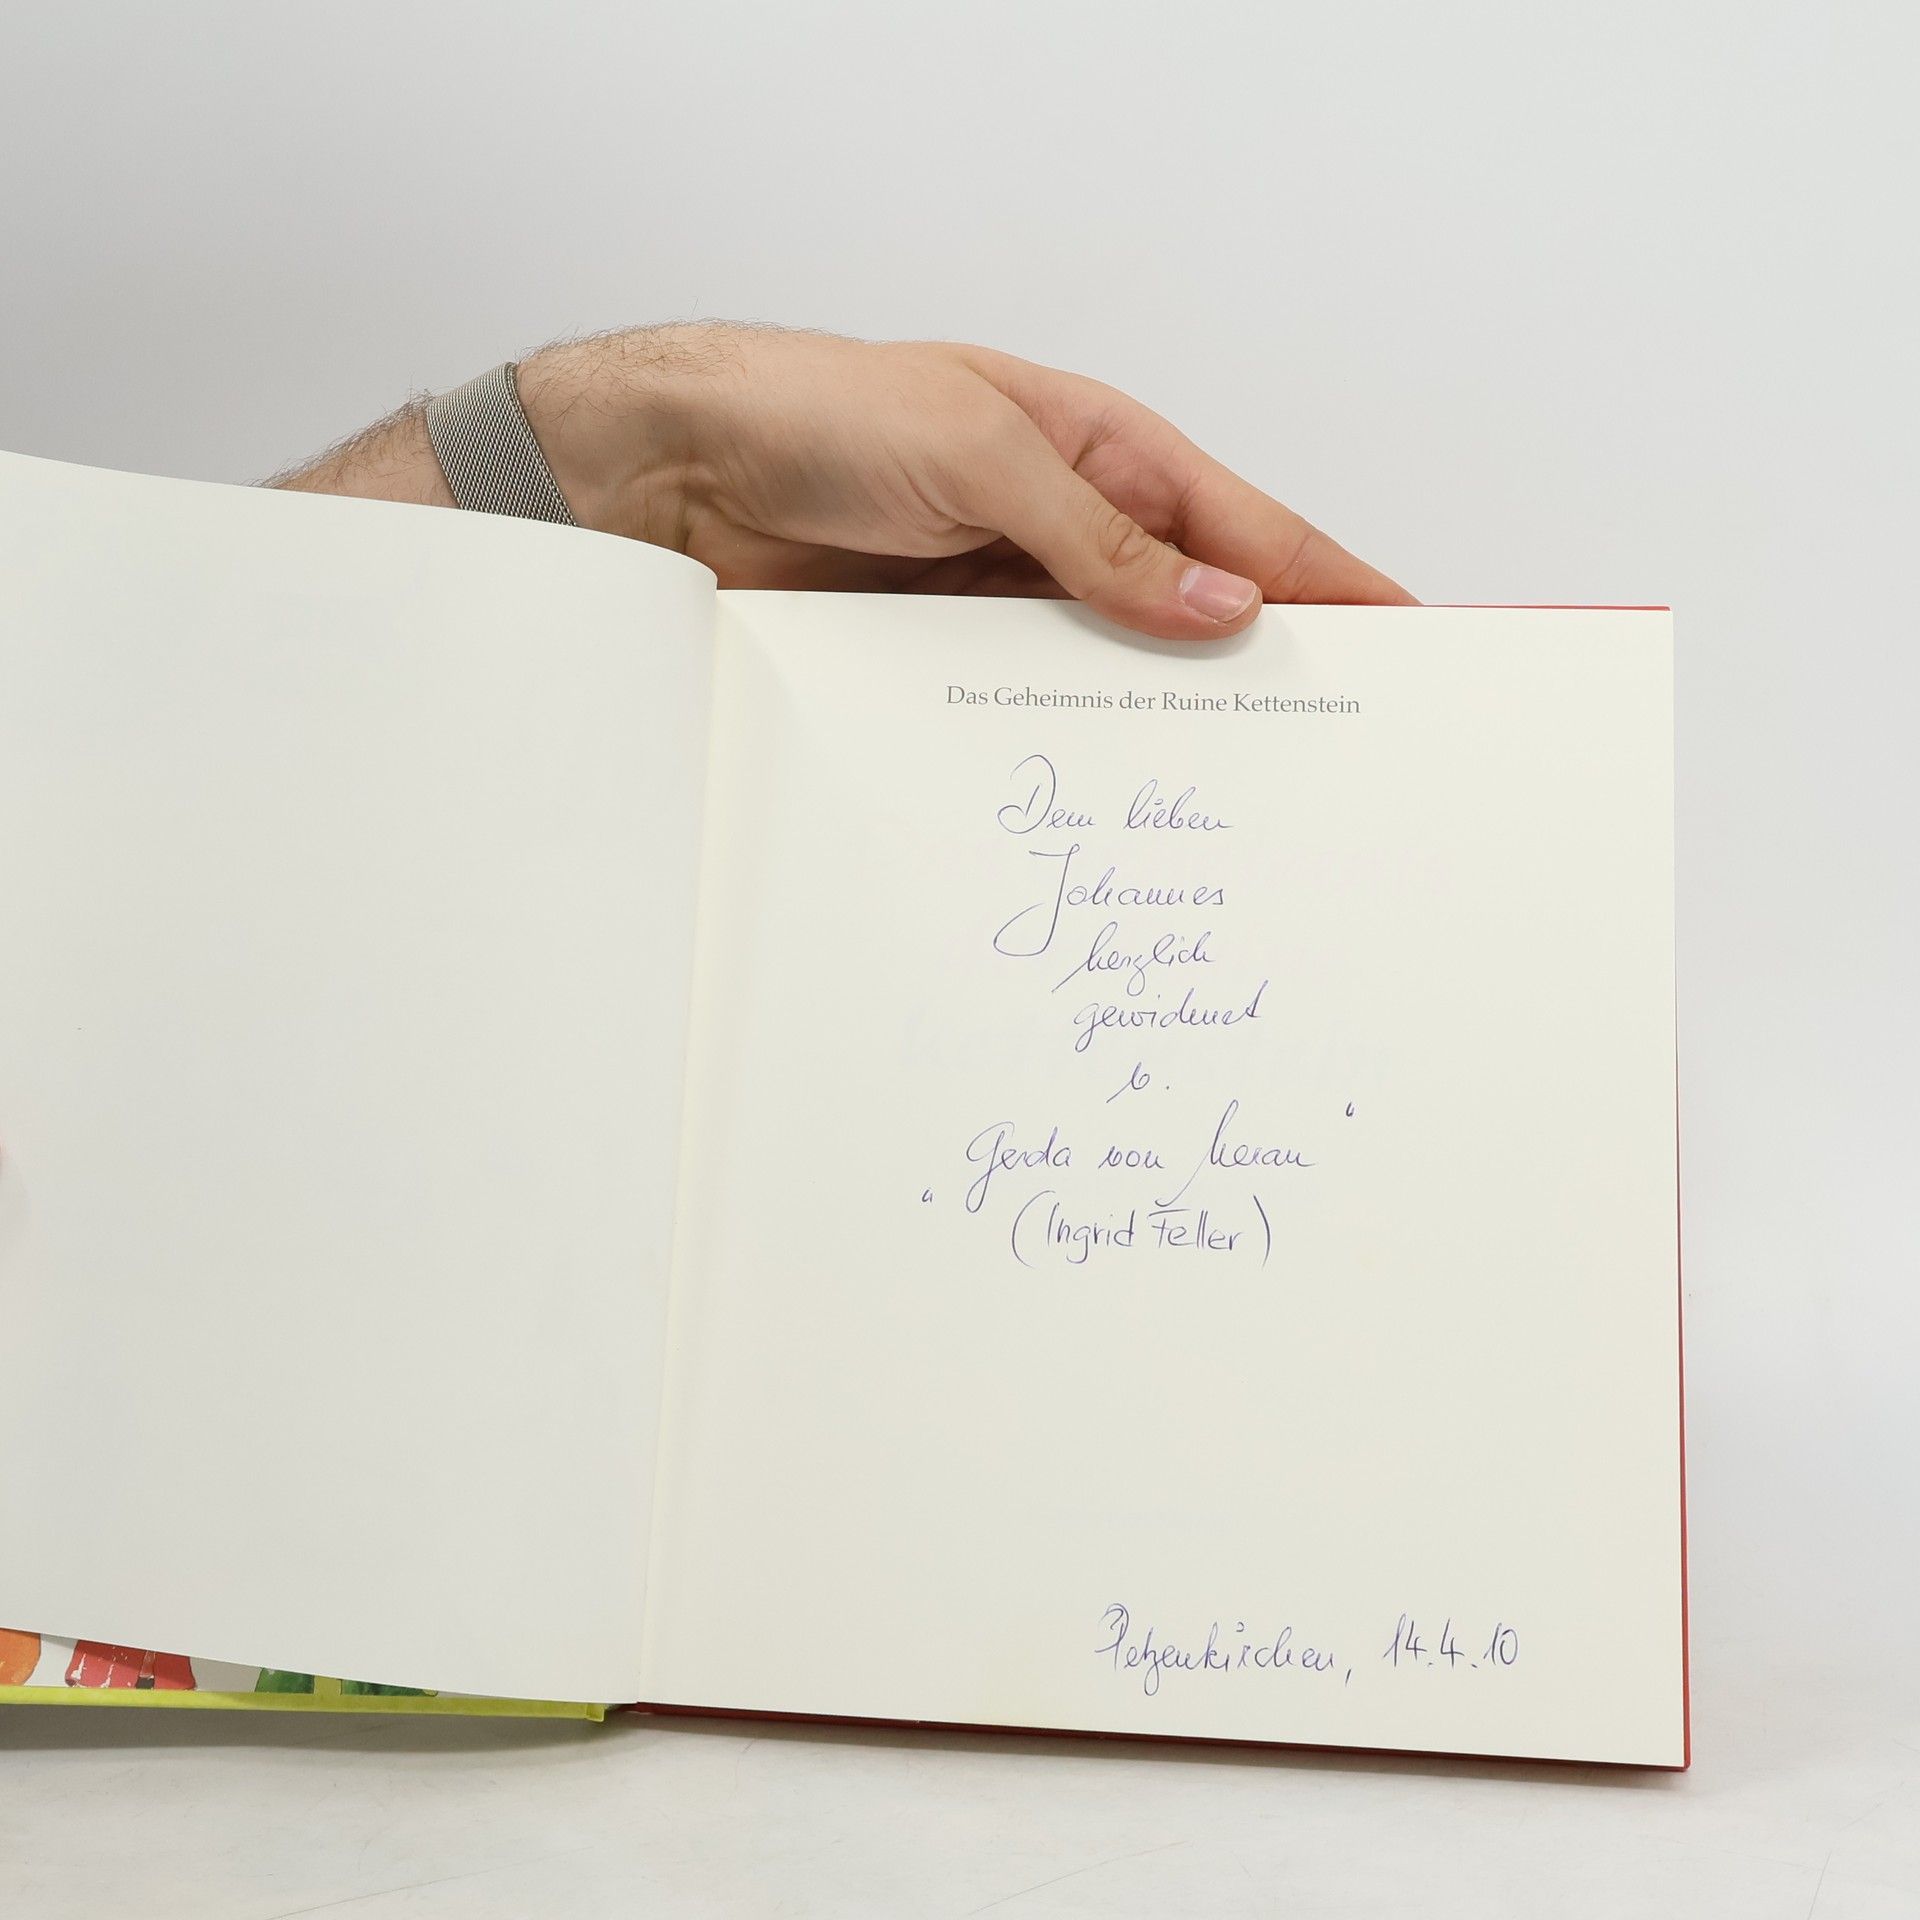 Das Geheimnis der Ruine Kettenstein
Dem lieben
Johannes
herzlich
gewidmet
v.
Gerda von Meran "
" (Ingrid Feller)
Petzenkirchen, 14.4.10